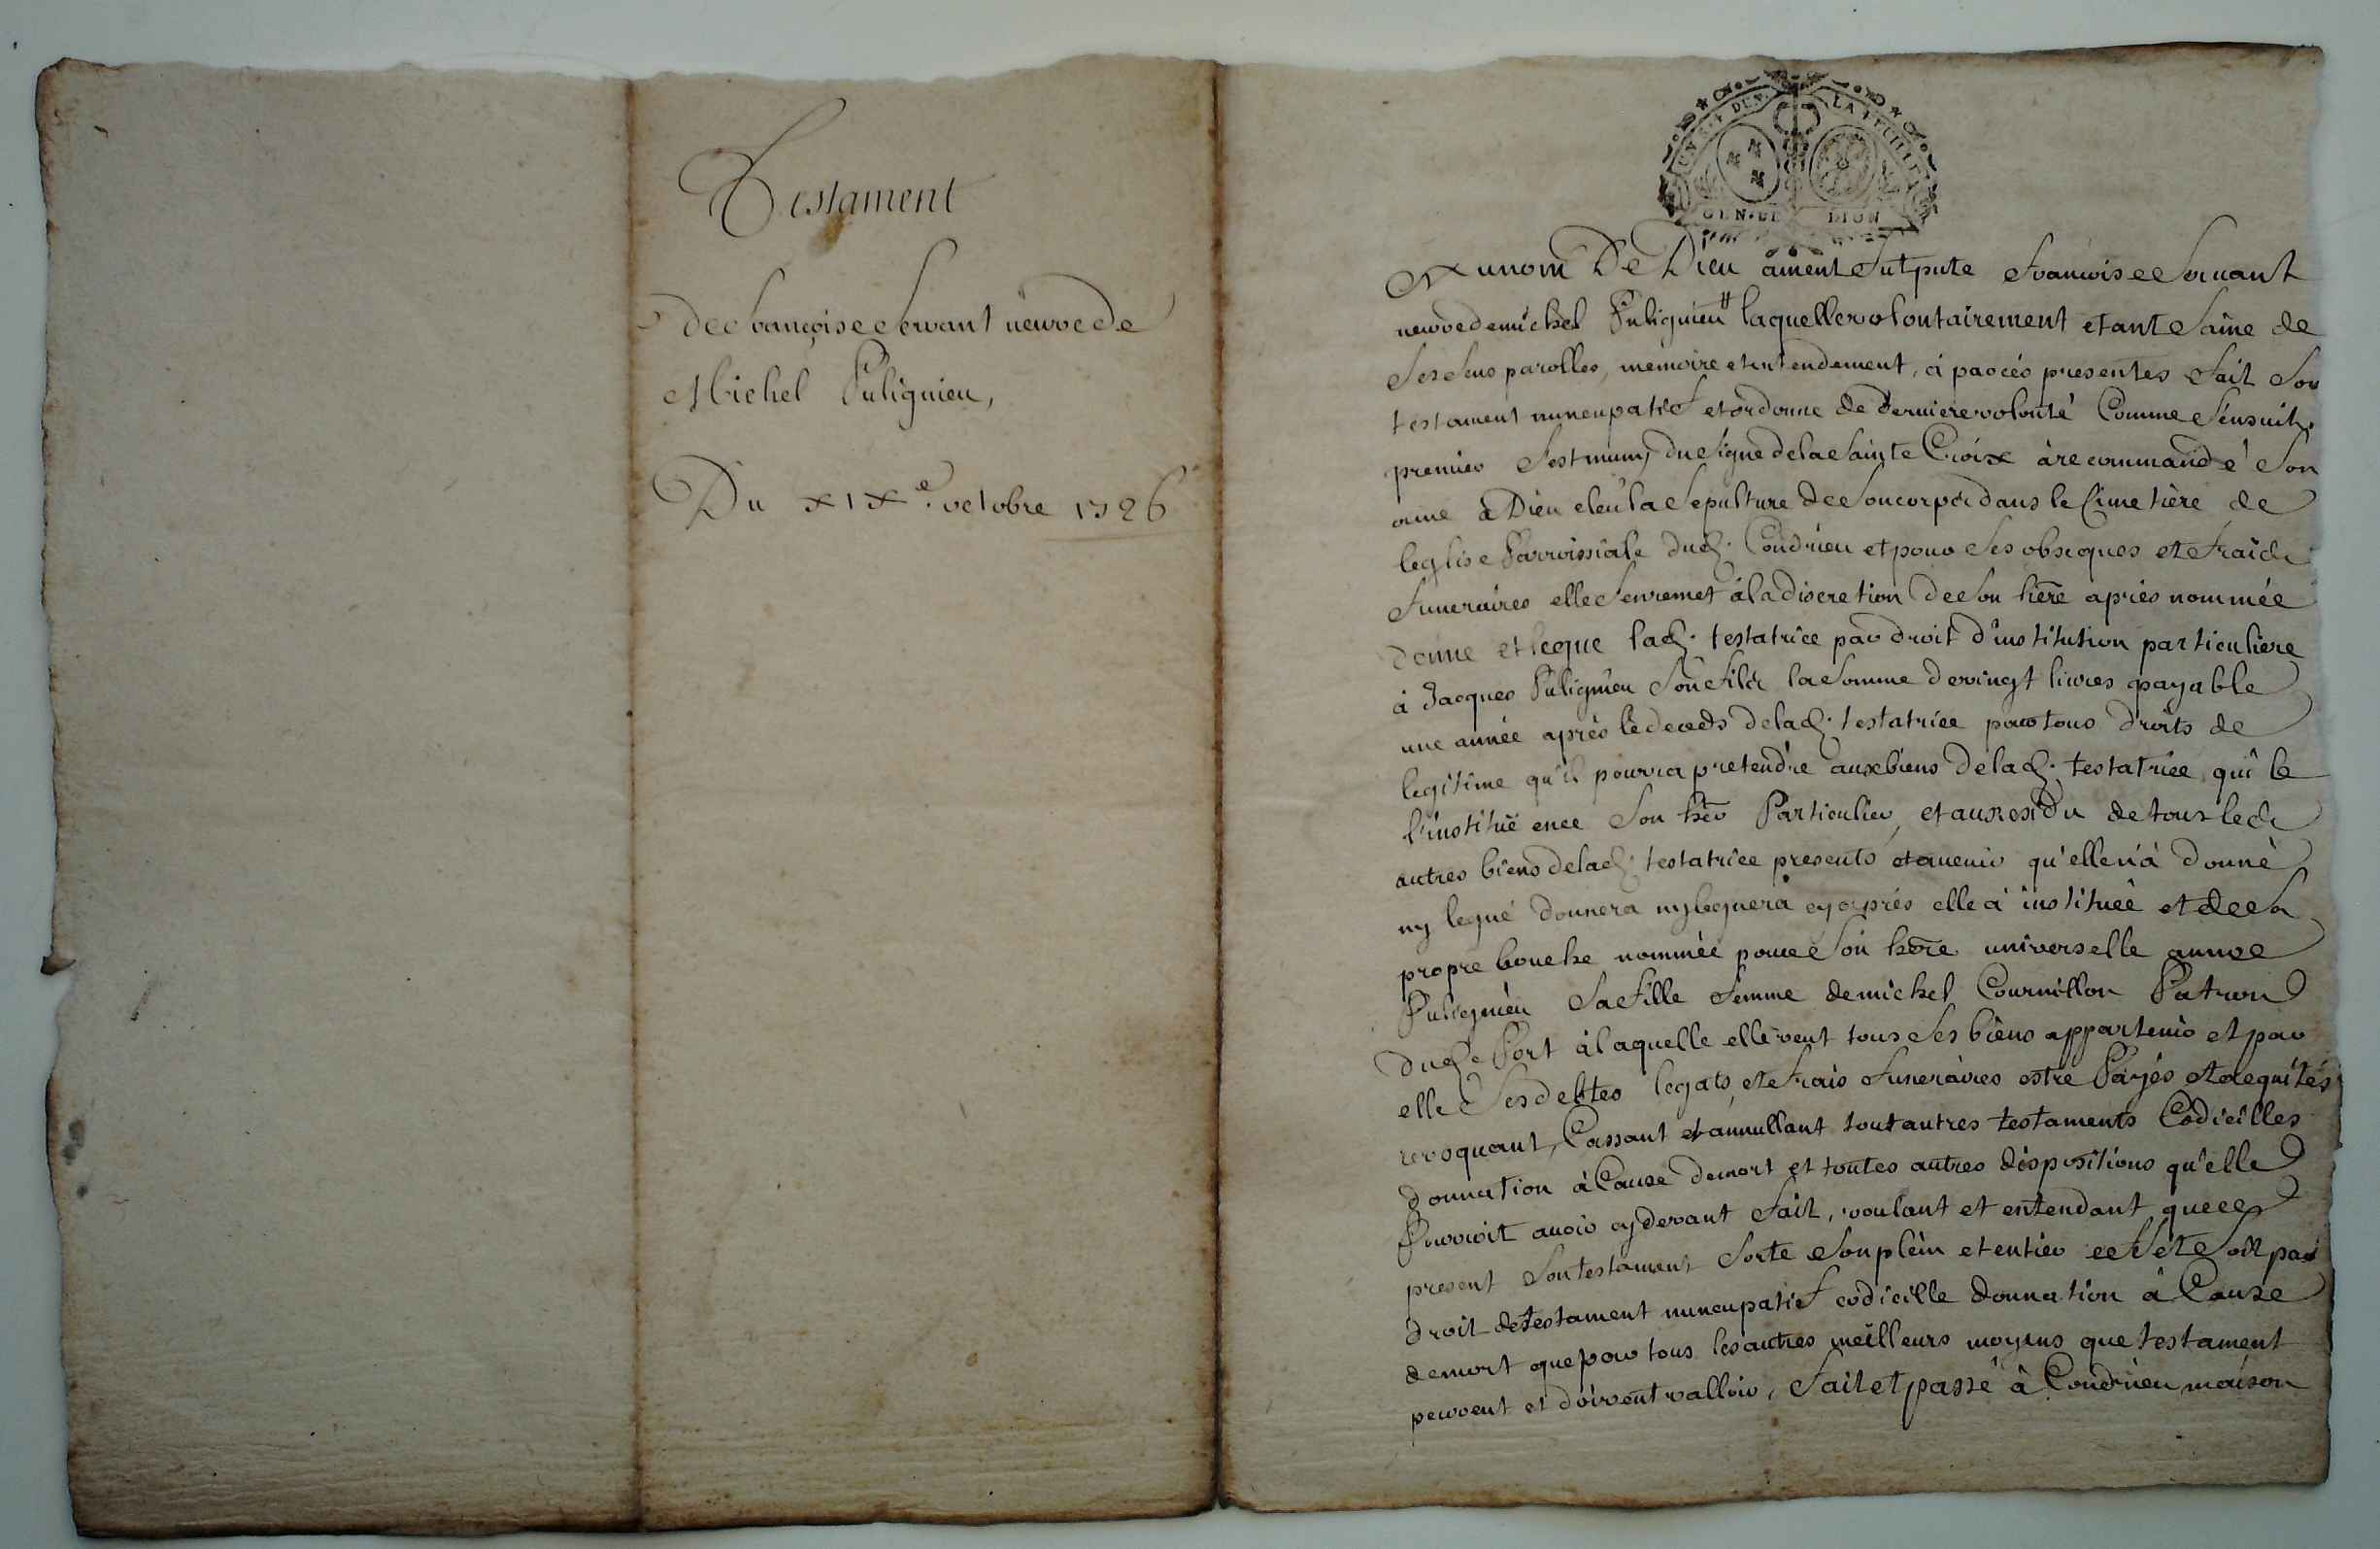 Testament
de françoise servant veuve de
Michel Pulignieu,
Du XIXe. octobre 1726
LA FEUILLE
GEN. DE LION
Au nom De Dieu ament fut pnte francoise servant
veuve de michel Puligneu laquelle volontairement etant saine de
ses sens parolles, memoire et entendement, à par cés presentes fait son
testament nuncupatif et ordonne de derniere volonté Comme s'ensuit.
premier s'est muny du signe de la sainte Croix à recommandé son
ame à Dieu eleu la sepulture de son corps dans le Cimetière de
leglise Parroissiale dud. Condrieu et pour ses obseques et fraids
funeraires elle s'en remet à la discretion de son hére aprés nommée
donne et legue lad. testatrice par droit d'institution particuliere
à Jacques Puligneu son fils la somme de vingt livres payable
une année aprés le deceds de lad. testatrice pour tous droits de
legitime qu'il pourra pretendre aux biens de lad. testatrice qui le
l'institué en ce son hér Particulier, et au residu de tous les
autres biens de lad. testatrice presents et avenir qu'elle n'à donné
ny legué donnera ny leguera cy aprés elle à instituée et de sa
propre bouche nommée pour son hére universelle anne
Puligneu sa fille femme de michel Cournillon Patron
dud. Port à laquelle elle veut tous ses biens appartenir et par
elle ses debtes legats, et frais funeraires estre Payés et acquités
revoquant, Cassant et annullant tout autres testaments Codicilles
donnation à Cause de mort et toutes autres dispositions qu'elle
Pourroit avoir cy devant fait, voulant et entendant que ce
present son testament sorte son plein et entier effet soit par
droit de testament nuncupatif codicille donnation à Cause
de mort que par tous les autres meilleurs moyens que testament
peuvent et doivent valloir, fait et passé à Condrieu maison